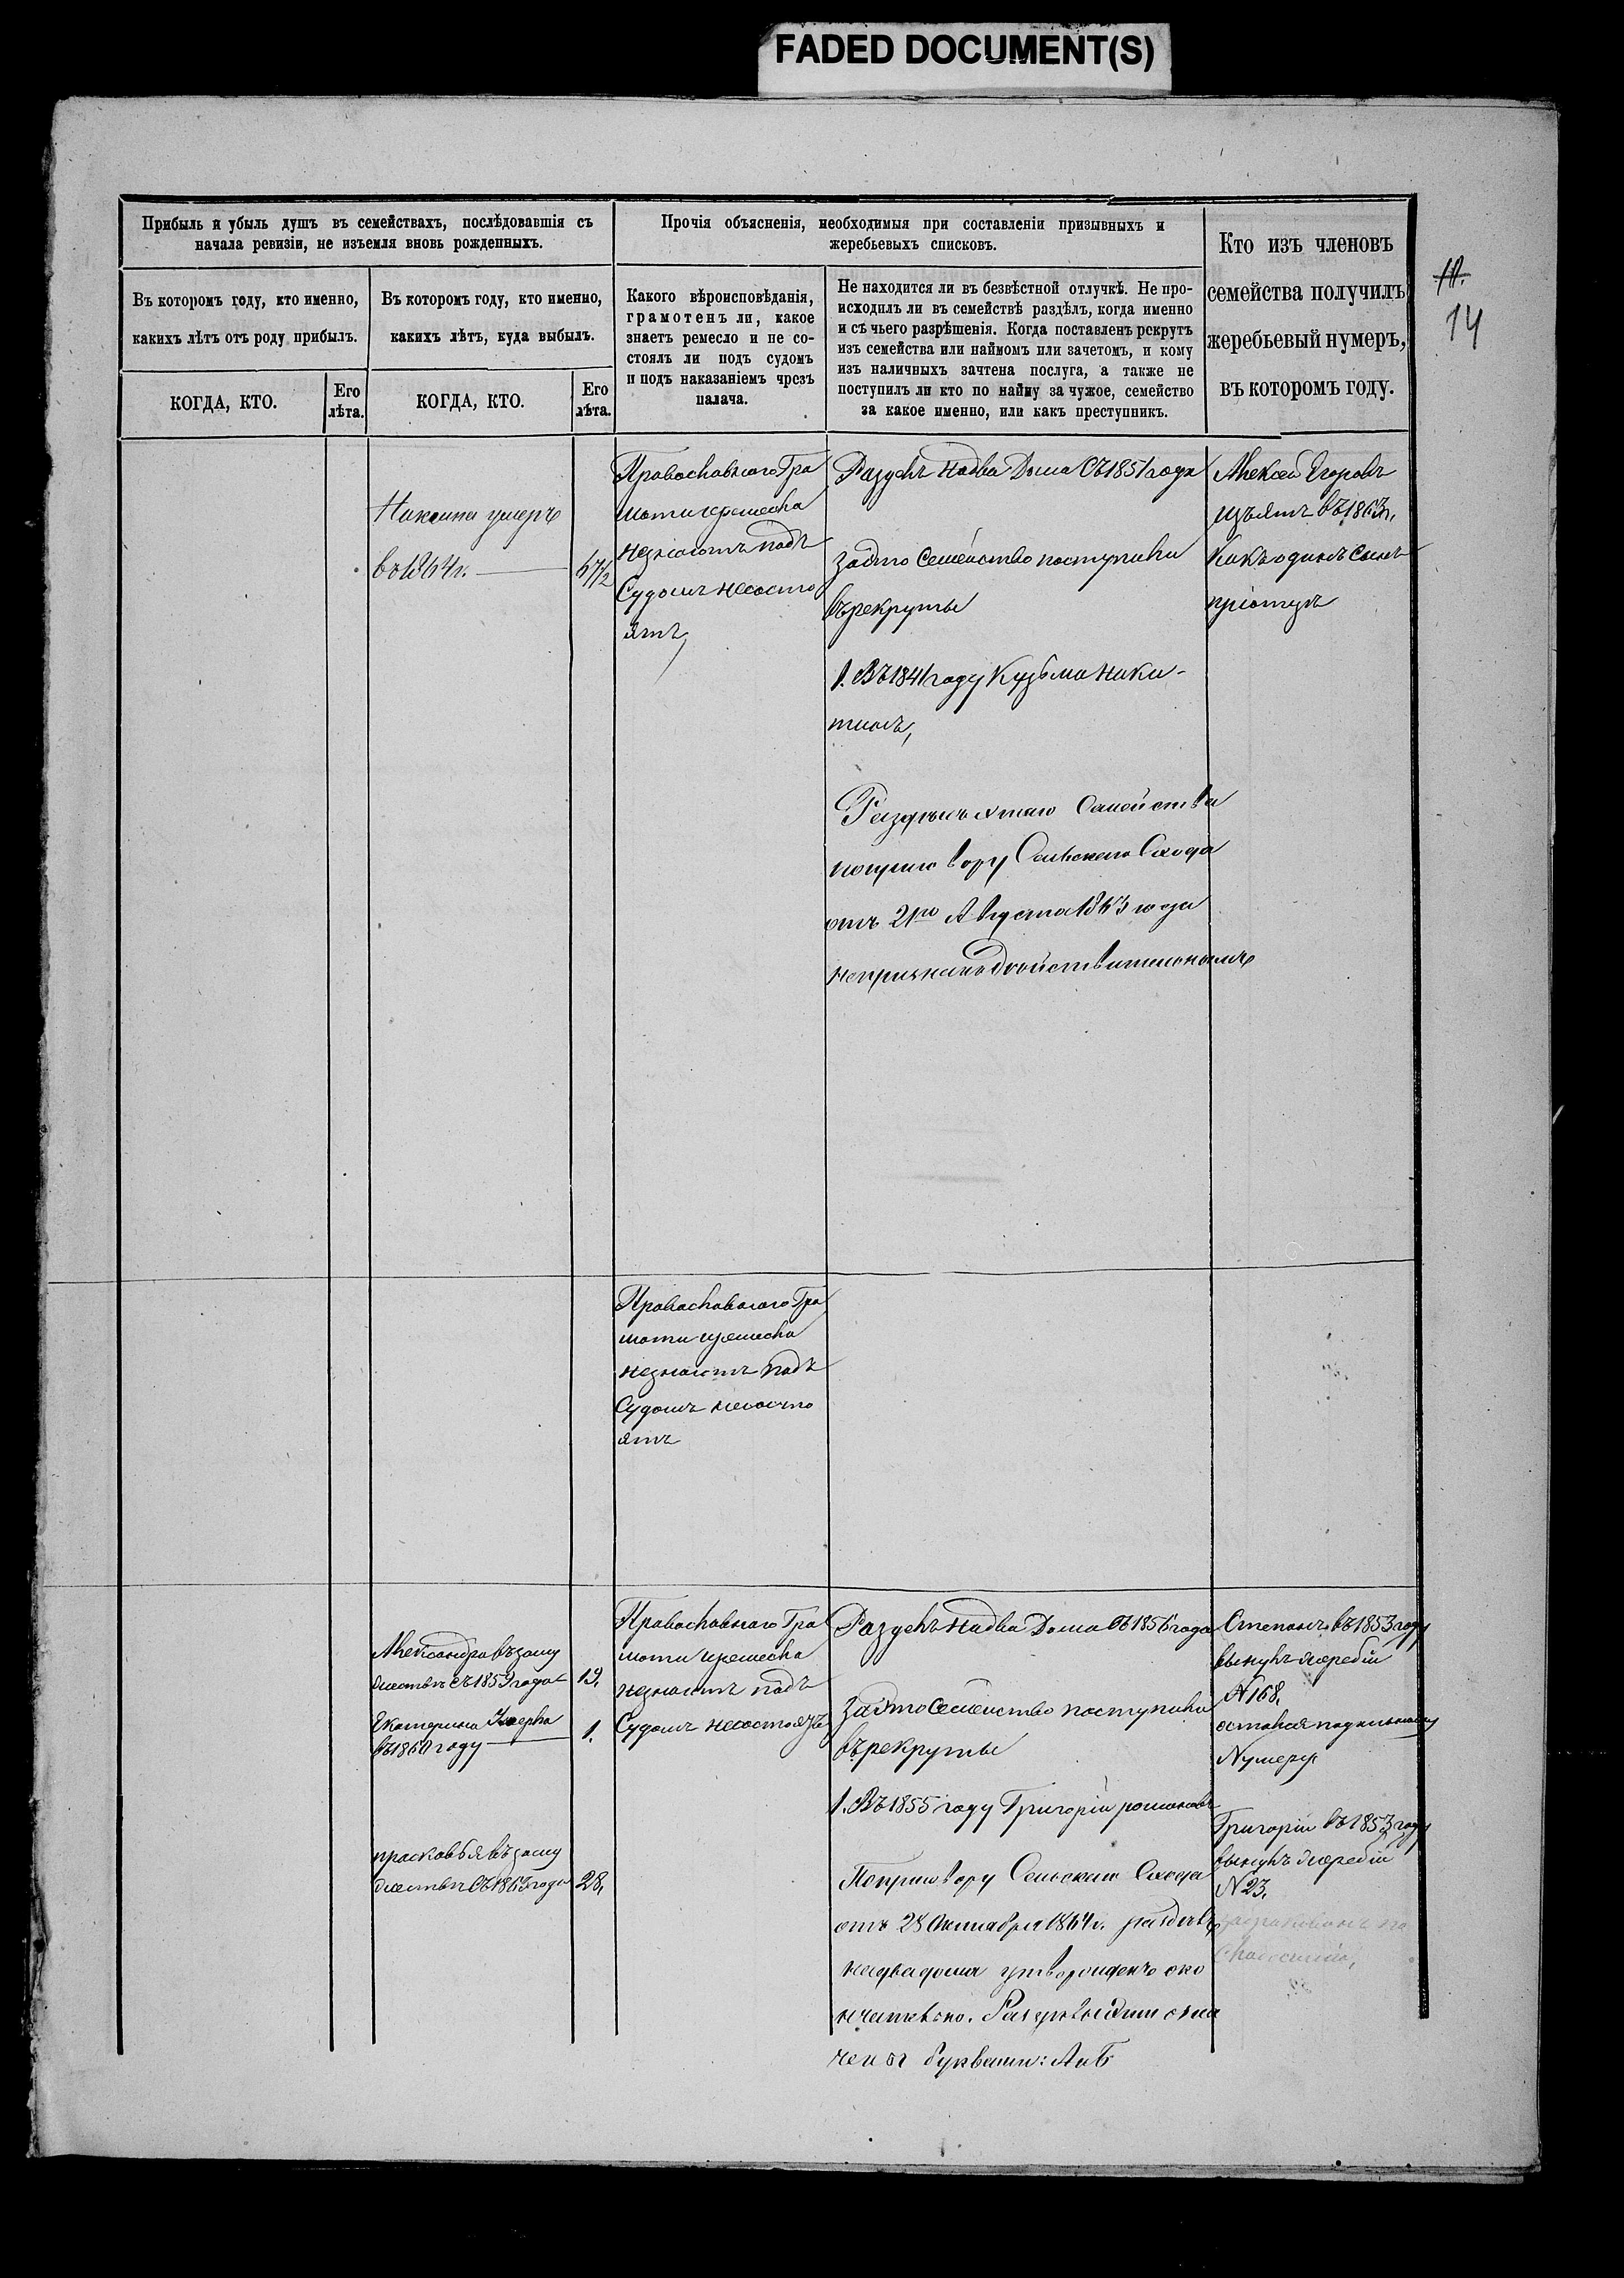 FADED DOCUMENT(S)
Прибыль и убыль душъ въ семействахъ, послѣдовавшія съ
начала ревизіи, не изъемля вновь рожденныхъ.
Прочія объясненія, необходимыя при составленіи призывныхъ и
жеребьевыхъ списковъ.
Кто изъ членовъ
семейства получилъ
жеребьевый нумеръ,
въ которомъ году.
14
Въ которомъ году, кто именно,
какихъ лѣтъ отъ роду прибылъ.
Въ которомъ году, кто именно,
какихъ лѣтъ, куда выбылъ.
Какого вѣроисповѣданія,
грамотенъ ли, какое
знаетъ ремесло и не со-
стоялъ ли подъ судомъ
и подъ наказаніемъ чрезъ
палача.
Не находится ли въ безвѣстной отлучкѣ. Не про-
исходилъ ли въ семействѣ раздѣлъ, когда именно
и съ чьего разрѣшенія. Когда поставленъ рекрутъ
изъ семейства или наймомъ или зачетомъ, и кому
изъ наличныхъ зачтена послуга, а также не
поступилъ ли кто по найму за чужое, семейство
за какое именно, или какъ преступникъ.
КОГДА, КТО.
Его
лѣта.
КОГДА, КТО.
Его
лѣта.
Никита умеръ
въ 1864 г.
Православнаго Гра
моти иремесла
незнаютъ подъ
Судомъ несосто
ятъ,
Раздѣлъ Надва Дома Съ 1851 года
заэто Семейство поступили
въ рекруты
1. Въ 1841 году Кузьма Ники-
тинъ,
Раздѣлъ этаго Семейства
поприговору Сельскаго Схода
отъ 21го Августа 1863 года
непризнанъ дѣйствительнымъ
Алексей Егоровъ
изъятъ въ 1863 г.
Какъ одинъ Сынъ
приотцѣ
Православнаго Гра
моти иремесла
незнаютъ подъ
Судомъ несосто
ятъ
Александра въ заму
жествѣ съ 1859 года
19.
Екатерина Умерла
въ 1860 году
1.
прасковья въ заму
жествѣ съ 1863 года
28.
Православнаго Гра
моти иремесла
незнаютъ подъ
Судомъ несостоятъ
Раздѣлъ Надва Дома Съ 1856 года
заэто Семейство поступили
въ рекруты
1. Въ 1855 году Григорій романовъ
Поприговору Сельскаго Схода
отъ 28 Октября 1864 г. раздѣлъ
надвадома утвержденъ око
нчательно. Раздѣлы
чены буквами: А и Б
Степанъ въ 1853 году
вынулъ жеребій
№ 168.
остался подальному
Нумеру.
Григорій въ 1853 году
вынулъ жеребій
№ 23.